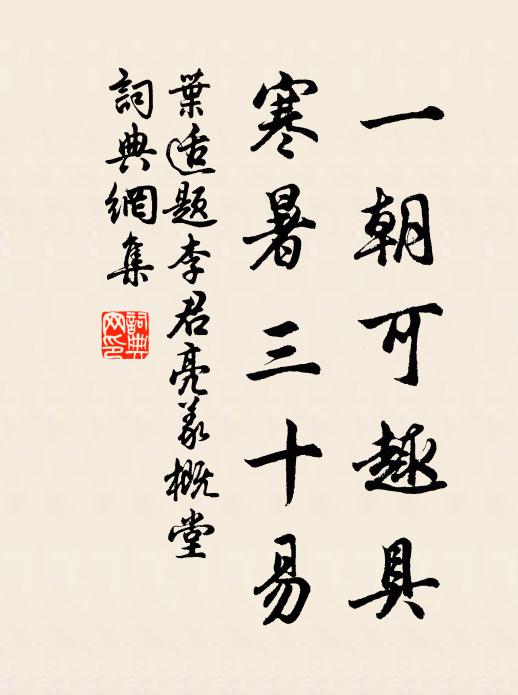 一朝可趣具
寒暑三十易
葉适題李君亮義概堂
詞典網集
詞典網印